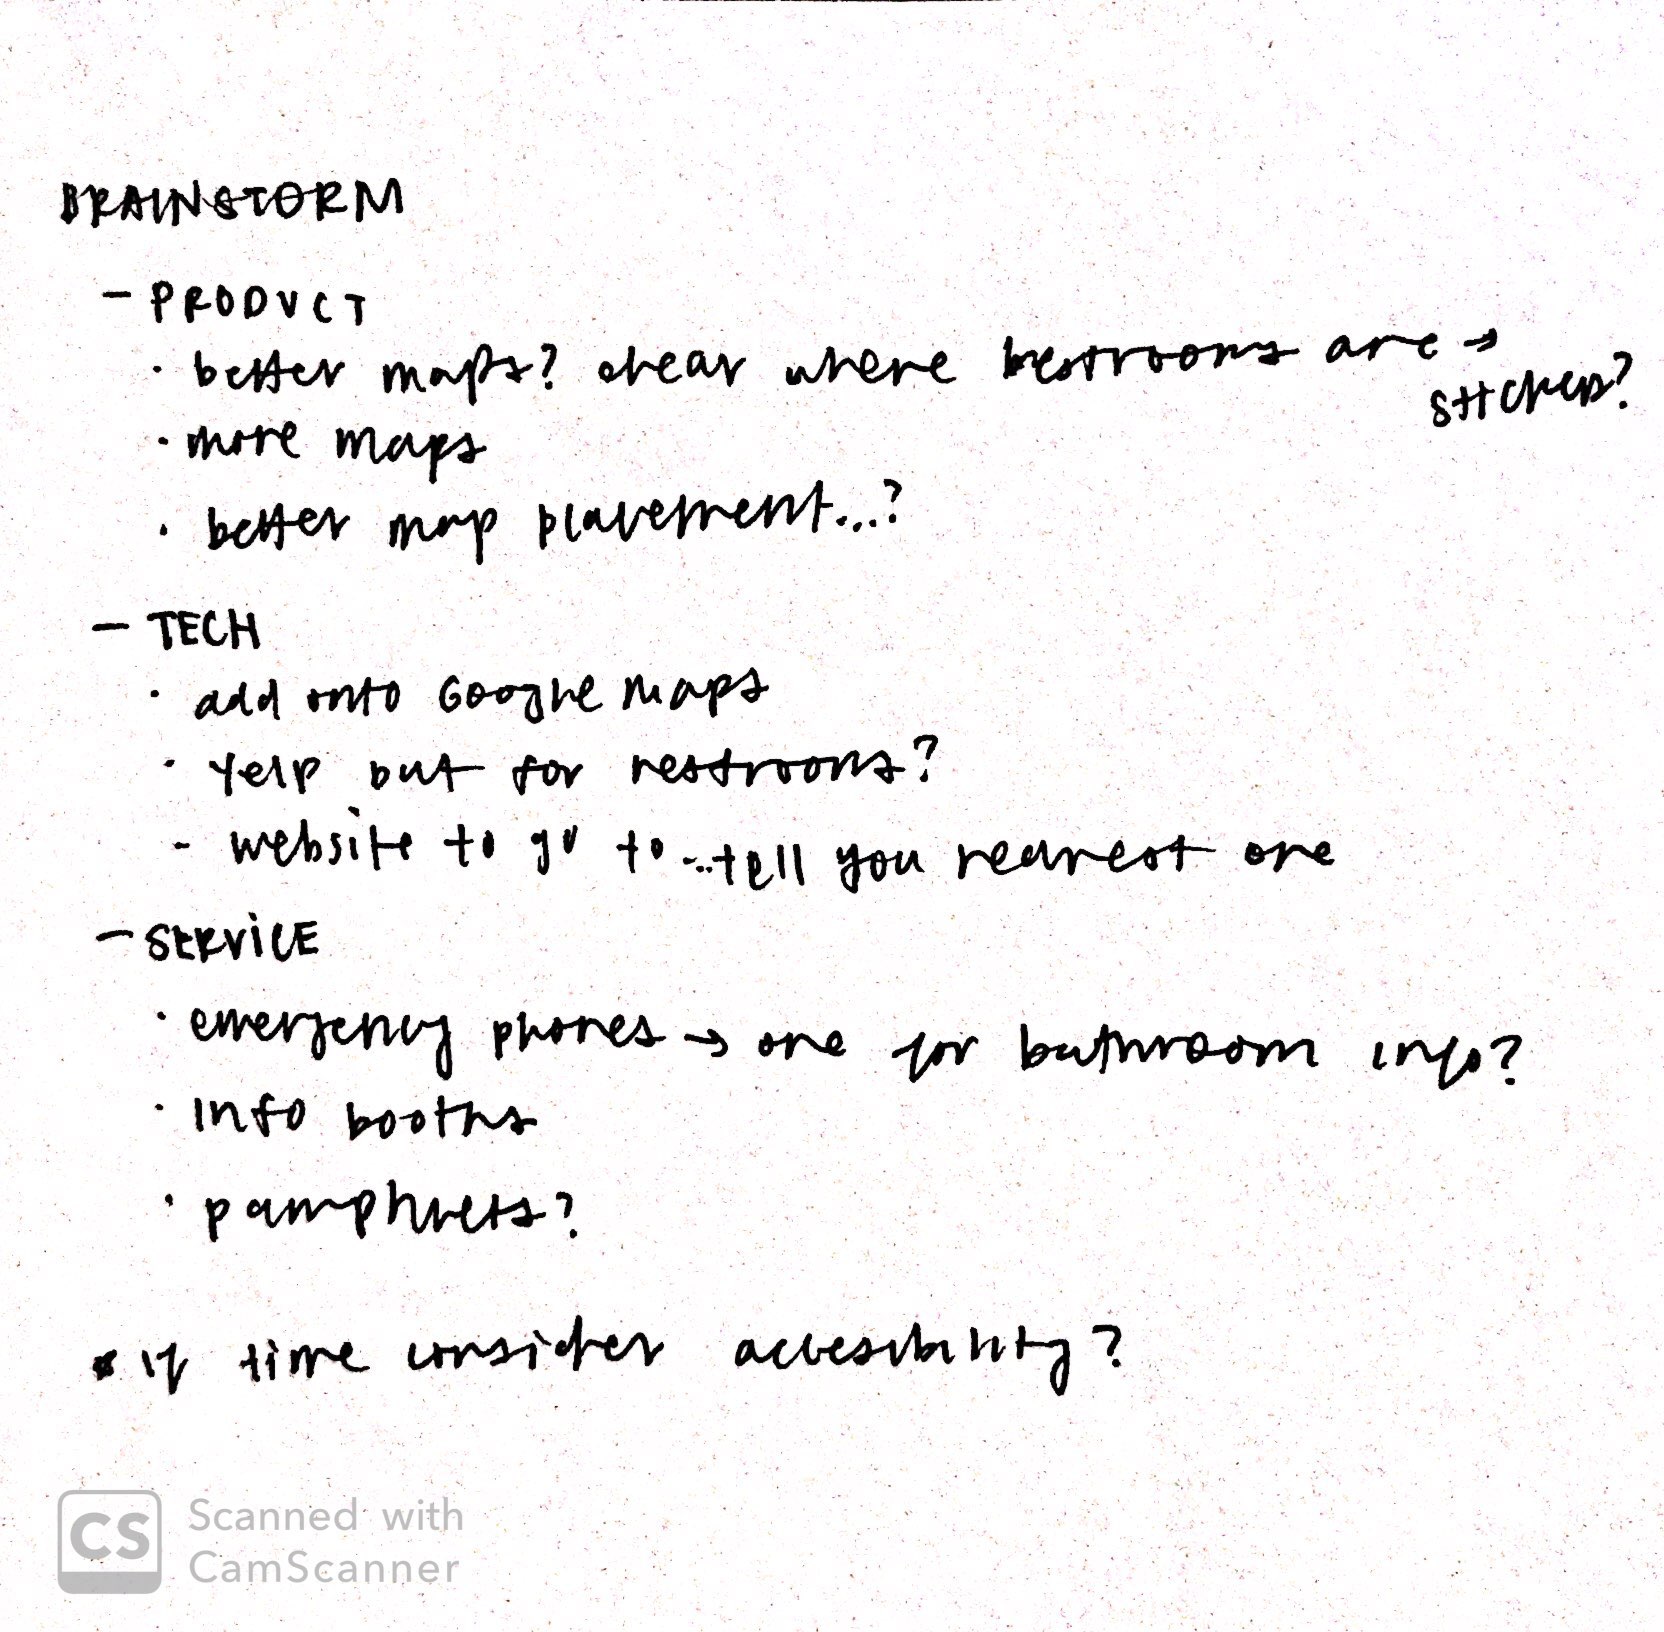 BRAINSTORM
- PRODUCT
· better maps? clear where bestrooms are →
stickers?
· more maps
· better map placement...?
- TECH
· add onto Google Maps
· Yelp but for restrooms?
- website to go to ...tell you nearest one
- SERVICE
· emergency phones → one for bathroom info?
· info booths
· pamphlets?
* if time consider accesibility?
CS Scanned with
CamScanner